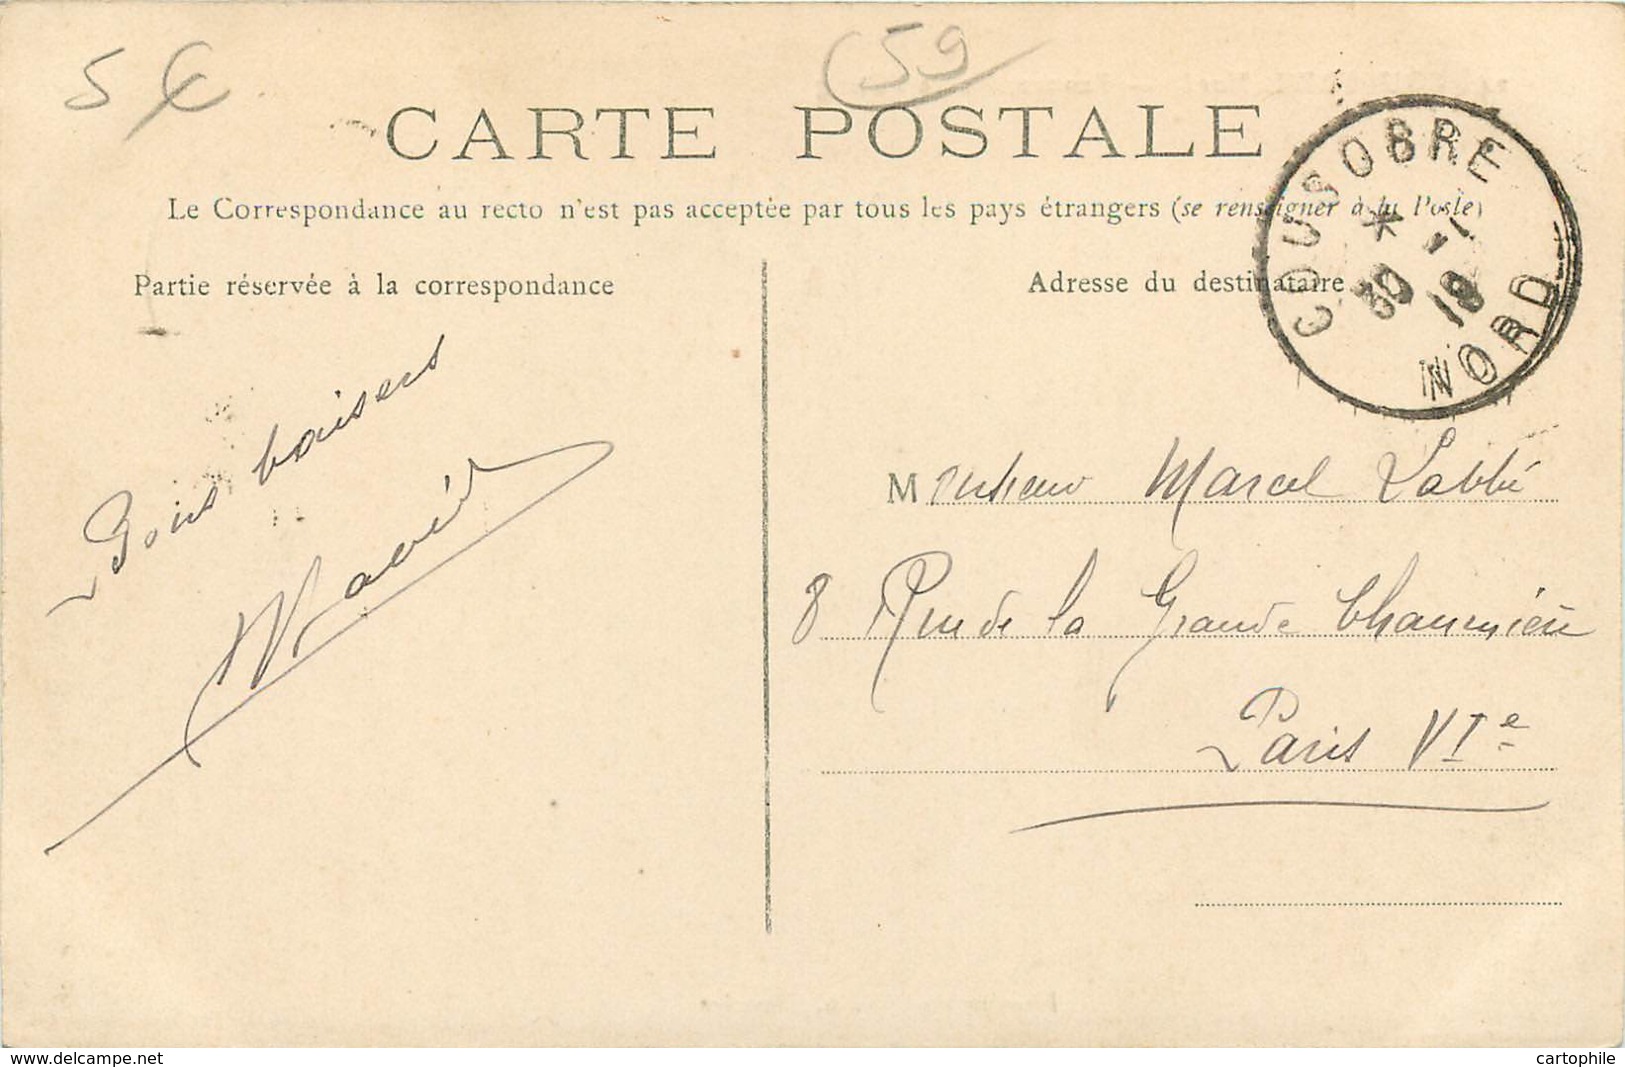 5 €
59
CARTE POSTALE
Le Correspondance au recto n'est pas acceptée par tous les pays étrangers (se renseigner à la Poste)
Partie réservée à la correspondance
Adresse du destinataire
COUSOBRE
NORD
30 -1
Bons baisers
Monsieur Marcel Labbé
8 Rue de la Grande Chaumière
Paris VIe
www.delcampe.net
cartophile